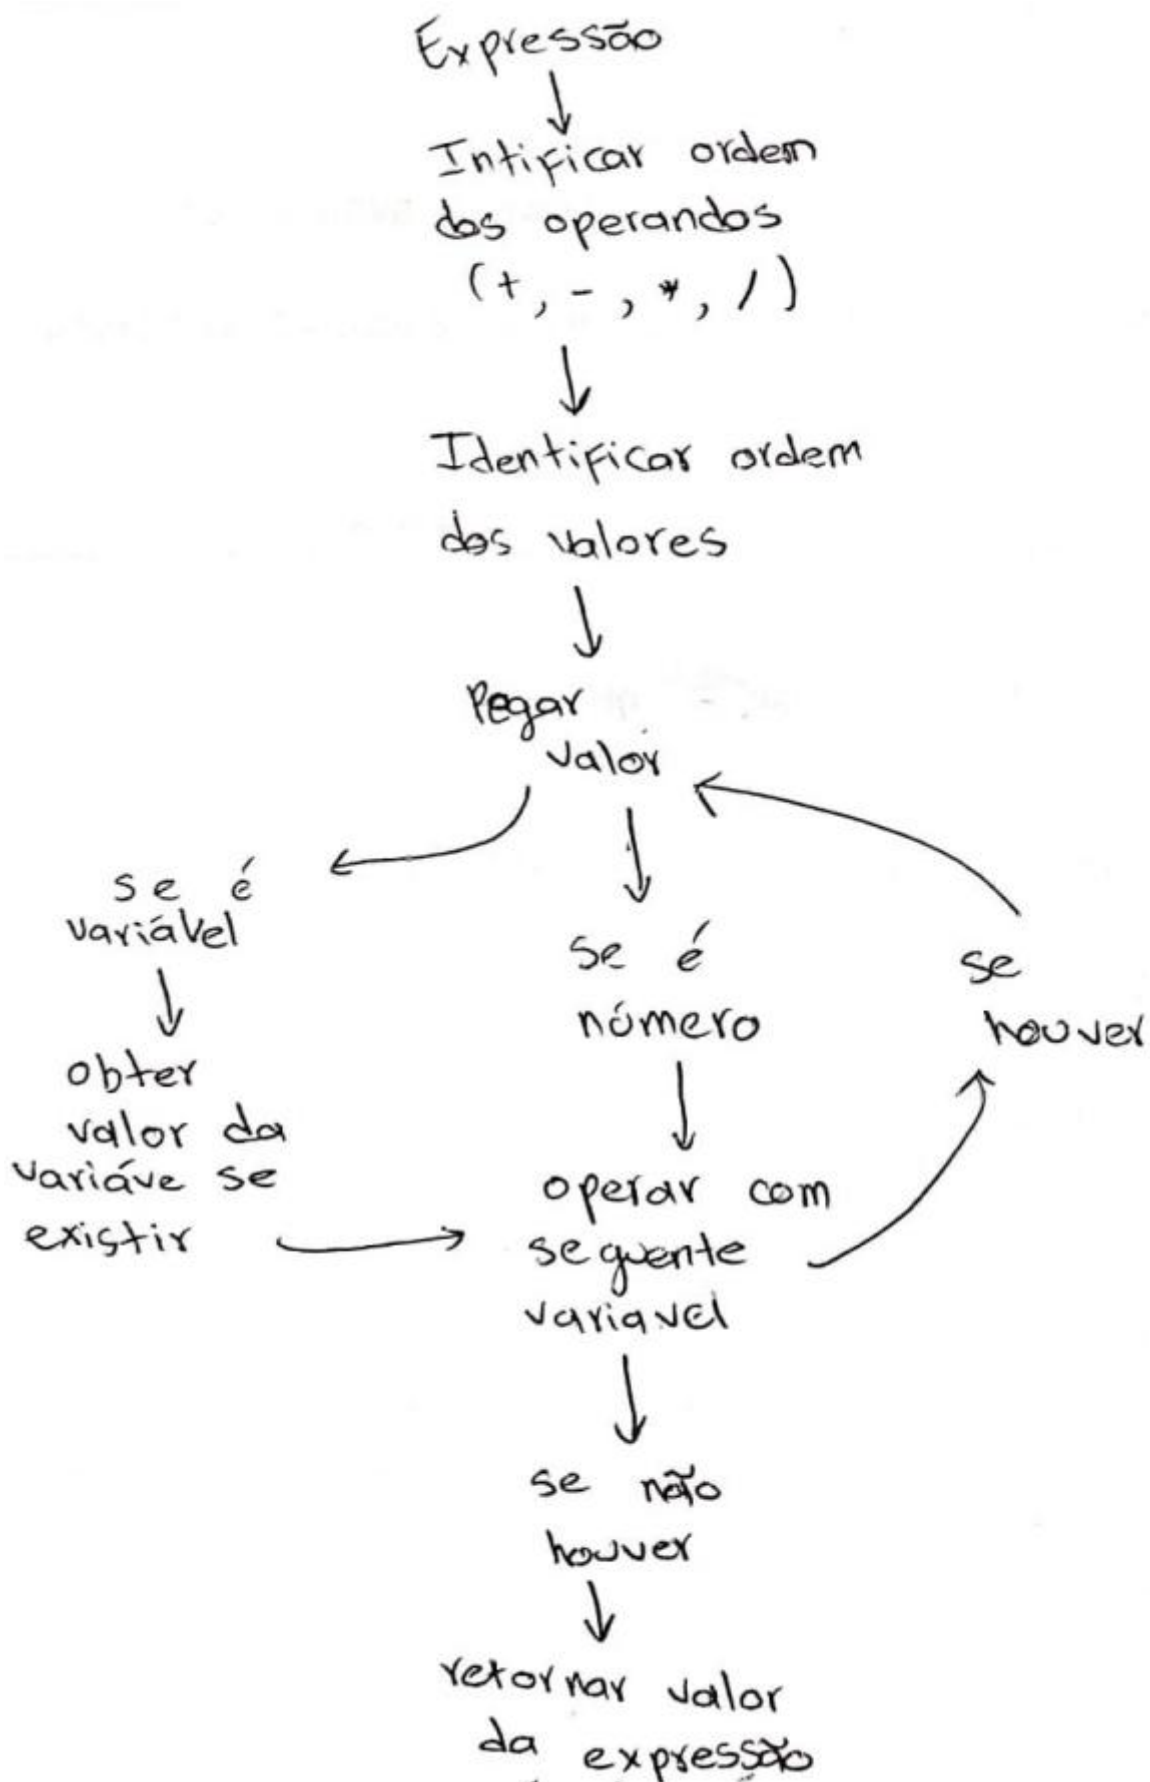 Expressão
Intificar ordem
dos operandos
(+, -, *, /)
Identificar ordem
dos valores
Pegar
valor
se é
variável
obter
valor da
variáve se
existir
se é
número
operar com
seguente
variavel
se
houver
se não
houver
retornar valor
da expressão